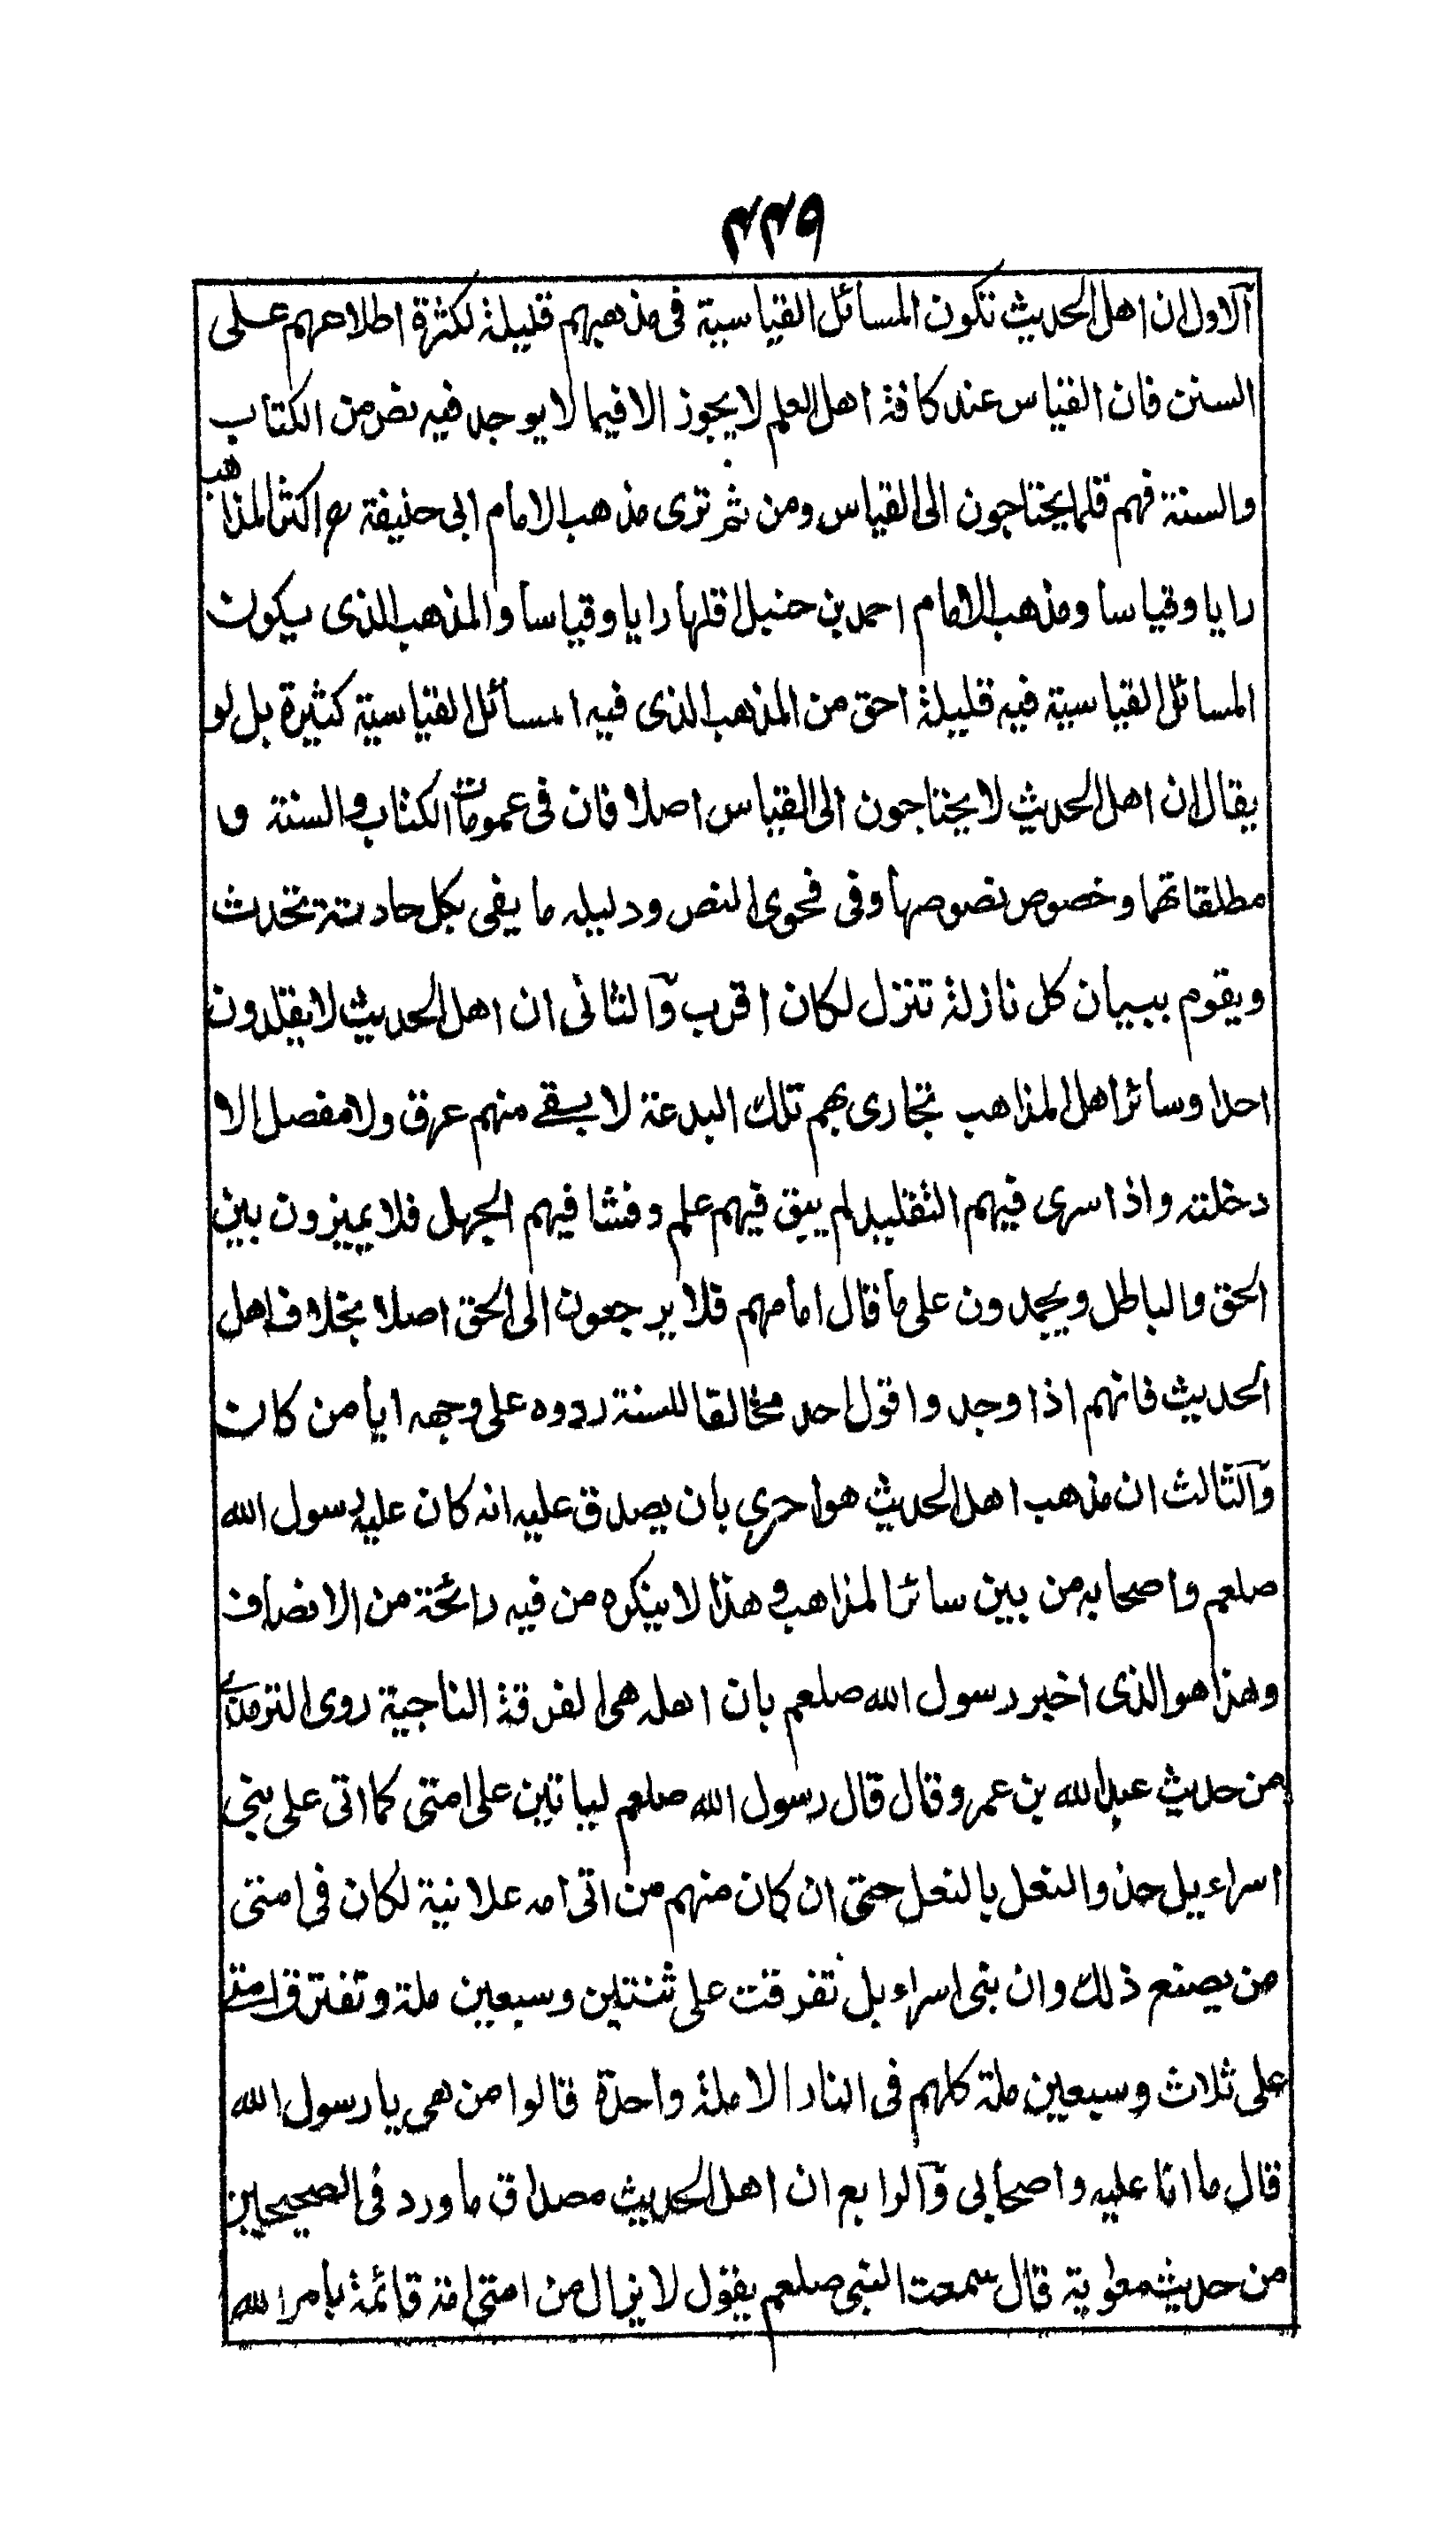 ٤٤٥
آلاول ان اهل الحديث تكون المسائل القياسية فى مذهبهم قليلة لكثرة اطلاعهم على
السنن فان القياس عند كافة اهل العلم لا يجوز الا فيما لا يوجد فيه نص من الكتاب
والسنة فهم قلما يحتاجون الى القياس ومن ثم ترى مذهب الامام ابى حنيفة رح اكثر المذاهب
رايا وقياسا ومذهب الامام احمد بن حنبل اقلها رايا وقياسا والمذهب الذى يكون
المسائل القياسية فيه قليلة احق من المذهب الذى فيه المسائل القياسية كثيرة بل لو
يقال ان اهل الحديث لا يحتاجون الى القياس اصلا فان فى عمومات الكتاب والسنة و
مطلقاتهما وخصوص نصوصها وفى فحوى النص ودليله ما يفى بكل حادثة تحدث
ويقوم ببيان كل نازلة تنزل لكان اقرب وآلثانى ان اهل الحديث لا يقلدون
احدا وسائر اهل المذاهب تجارى بهم تلك البدعة لا يبقے منهم عرق ولا مفصل الا
دخلته واذا سرى فيهم التقليد لم يبق فيهم علم وفشا فيهم الجهل فلا يميزون بين
الحق والباطل ويجمدون على ما قال امامهم فلا يرجعون الى الحق اصلا بخلاف اهل
الحديث فانهم اذا وجدوا قول احد مخالفا للسنة ردوه على وجهه ايا من كان
وآلثالث ان مذهب اهل الحديث هو احرى بان يصدق عليه انه كان عليه رسول الله
صلعم واصحابه من بين سائر المذاهب وهذا لا ينكره من فيه رائحة من الانصاف
وهذا هو الذى اخبر رسول الله صلعم بان اهله هى الفرقة الناجية روى الترمذى
من حديث عبد الله بن عمرو قال قال رسول الله صلعم لياتين على امتى كما اتى على بنى
اسراءيل حذو النعل بالنعل حتى ان كان منهم من اتى امه علانية لكان فى امتى
من يصنع ذلك وان بنى اسراءيل تفرقت على ثنتين وسبعين ملة وتفترق امتے
على ثلاث وسبعين ملة كلهم فى النار الا ملة واحدة قالوا من هى يا رسول الله
قال ما انا عليه واصحابى وآلرابع ان اهل الحديث مصداق ما ورد فى الصحيحين
من حديث معوية قال سمعت النبى صلعم يقول لا يزال من امتى امة قائمة بامر الله